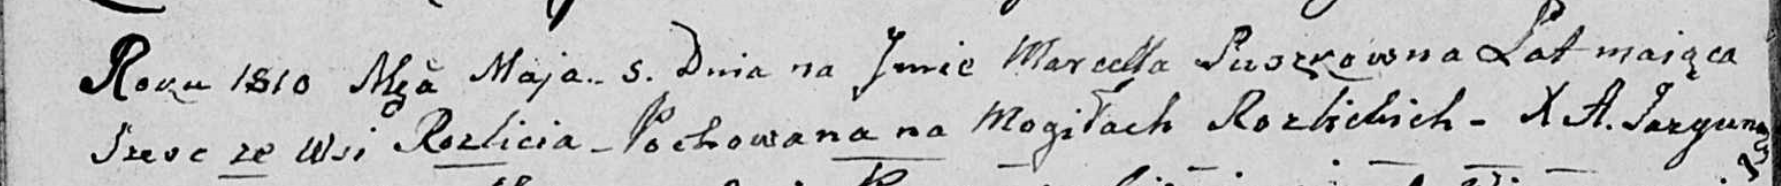 Roku 1810 Mca Maja. 5. Dnia na Jmie Marcella Puszkowna Lat maiąca
szesc ze Wsi Rozlicia - Pochowana na Mogiłach Rozlickich - X A.